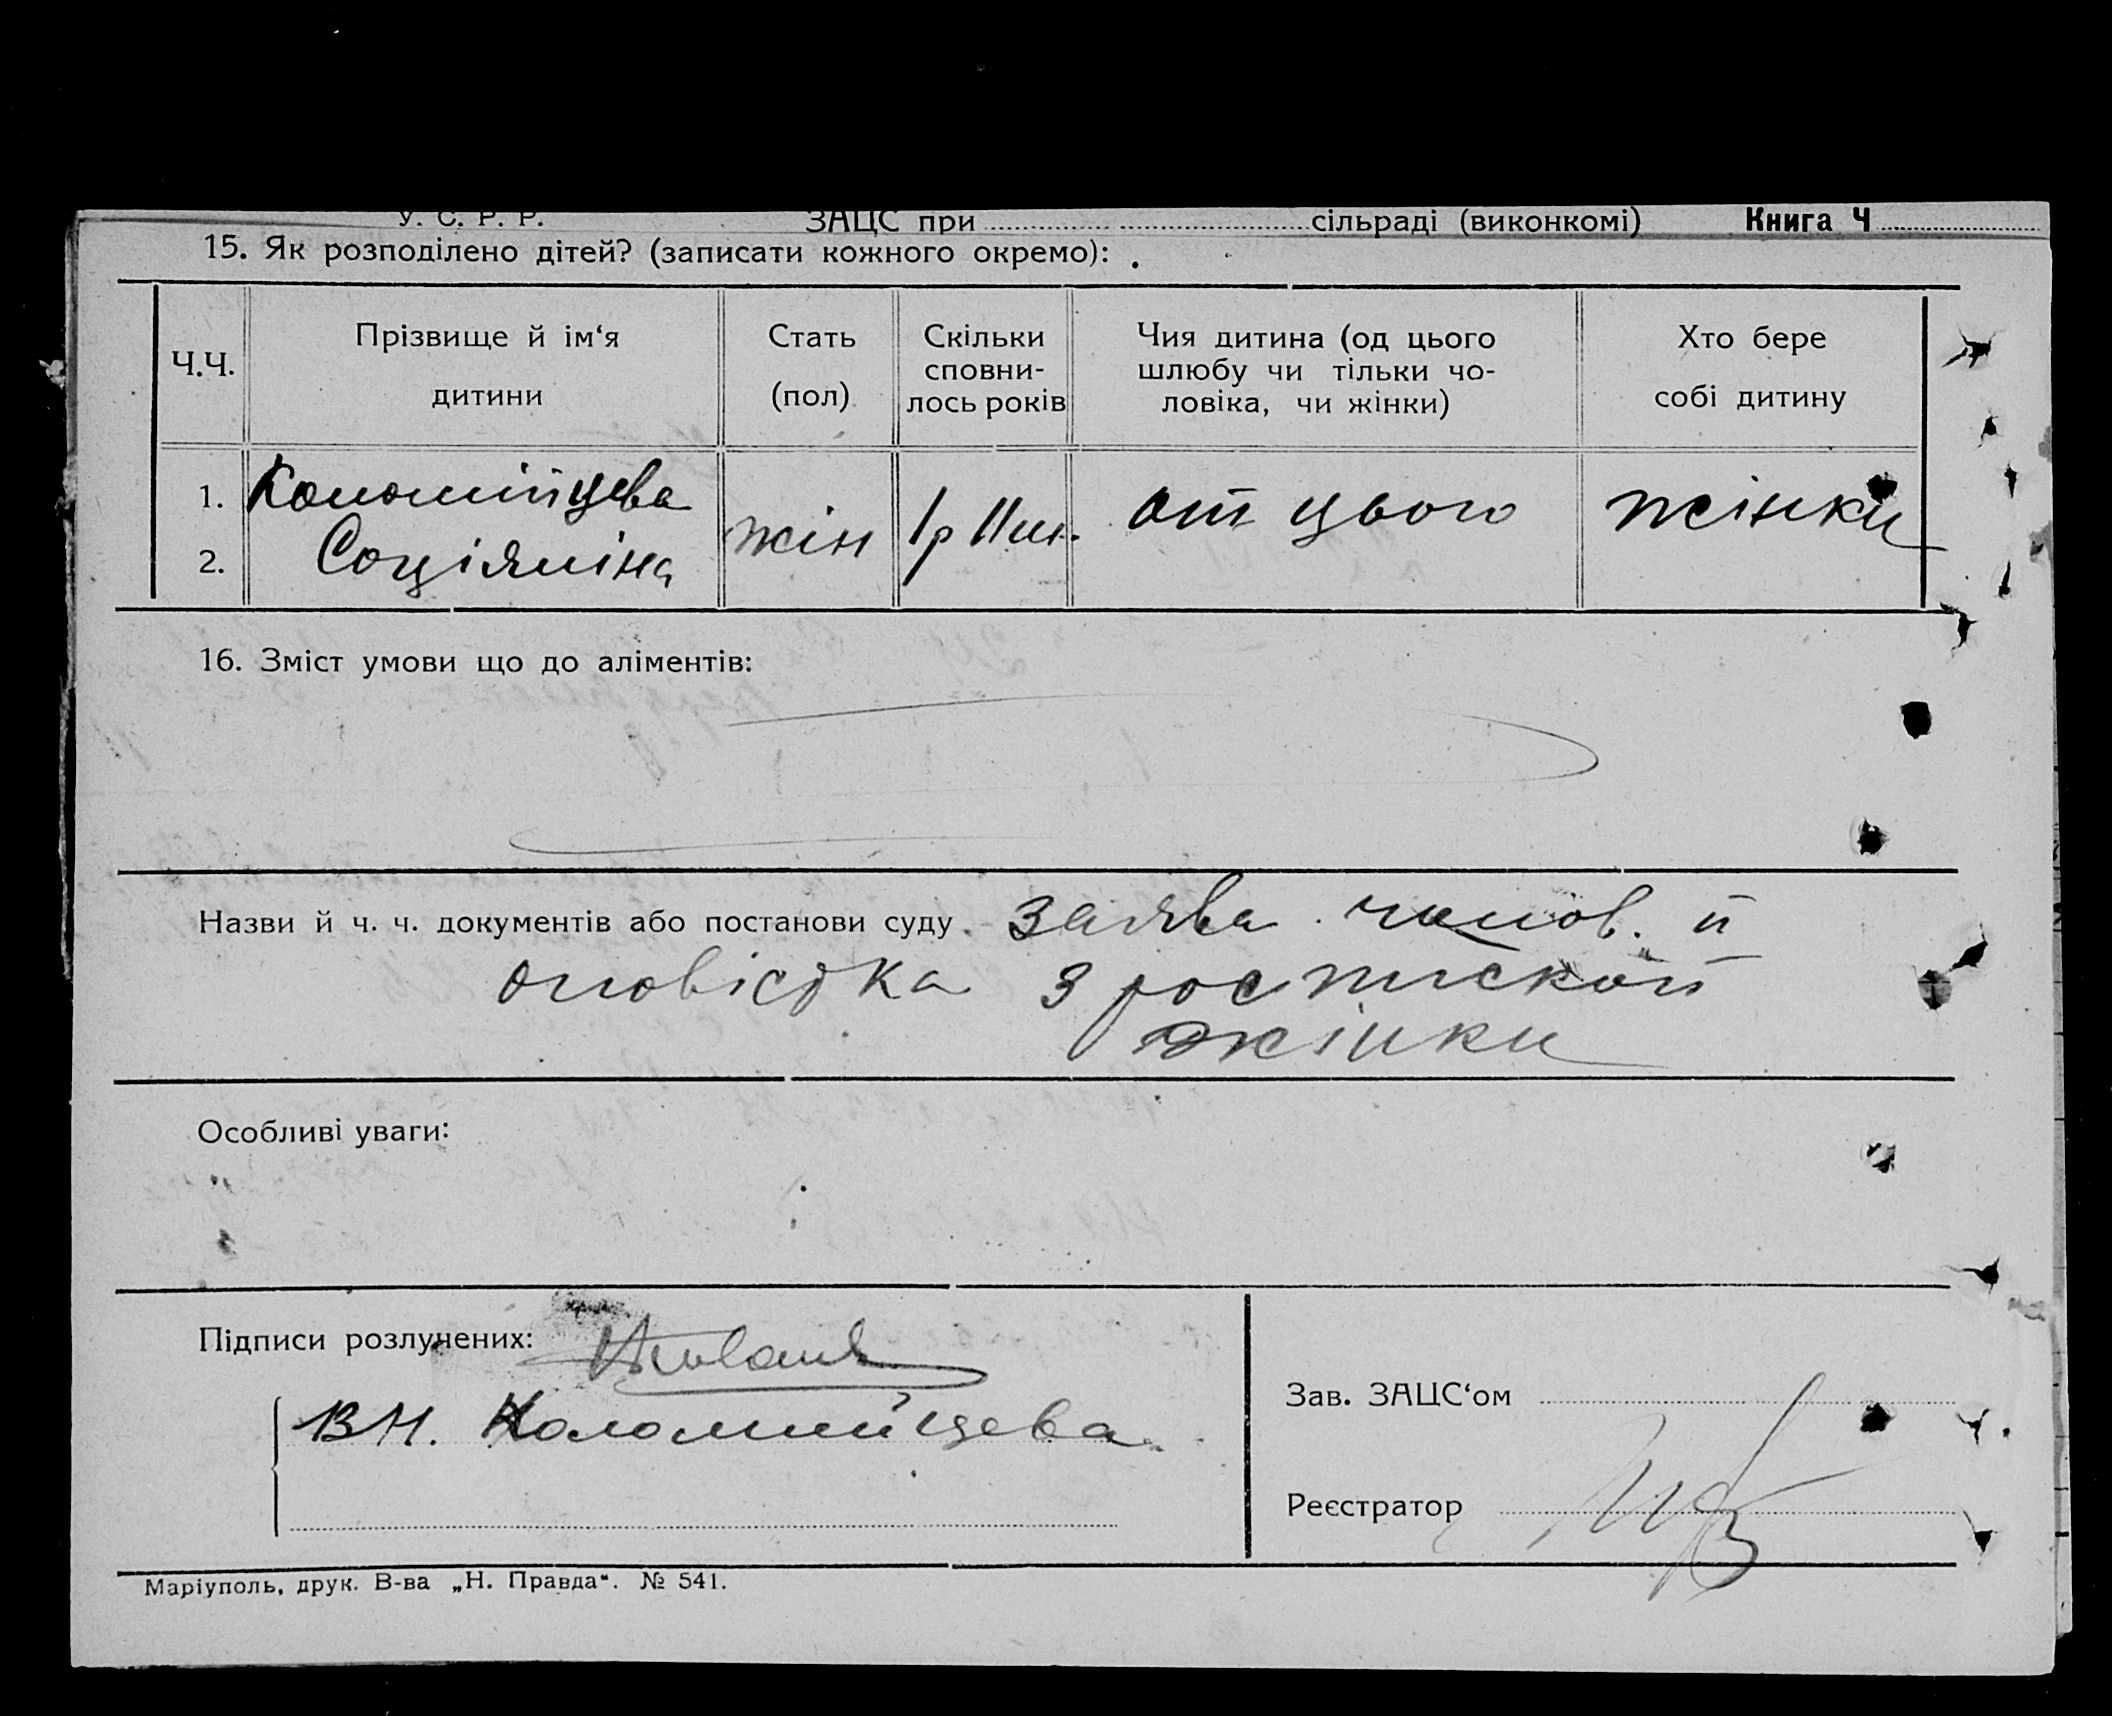 У. С. Р. Р. ЗАЦС при сільраді (виконкомі) Книга Ч
15. Як розподілено дітей? (записати кожного окремо):
Ч.Ч.
Прізвище й ім‘я
дитини
Стать
(пол)
Скільки
сповни-
лось років
Чия дитина (од цього
шлюбу чи тільки чо-
ловіка, чи жінки)
Хто бере
собі дитину
1. Коломийцева
2. Соціяліна
жін
1р 11м.
от цього
жінки
16. Зміст умови що до аліментів:
Назви й ч. ч. документів або постанови суду заява чолов. й
оповістка з роспиской
жінки
Особливі уваги:
Підписи розлучених:
В Н. Коломийцева
Зав. ЗАЦС‘ом
Реєстратор
Маріуполь, друк. В-ва „Н. Правда“. № 541.